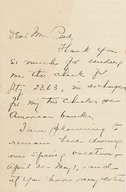 Dear Mr. Paul,
Thank you
so much for sending
me the check for
$ 23.63, in exchange
for my two checks on
American banks.
I am planning to
remain here during
our Spring vacation,
April 20 - May 1, and
if you have any work